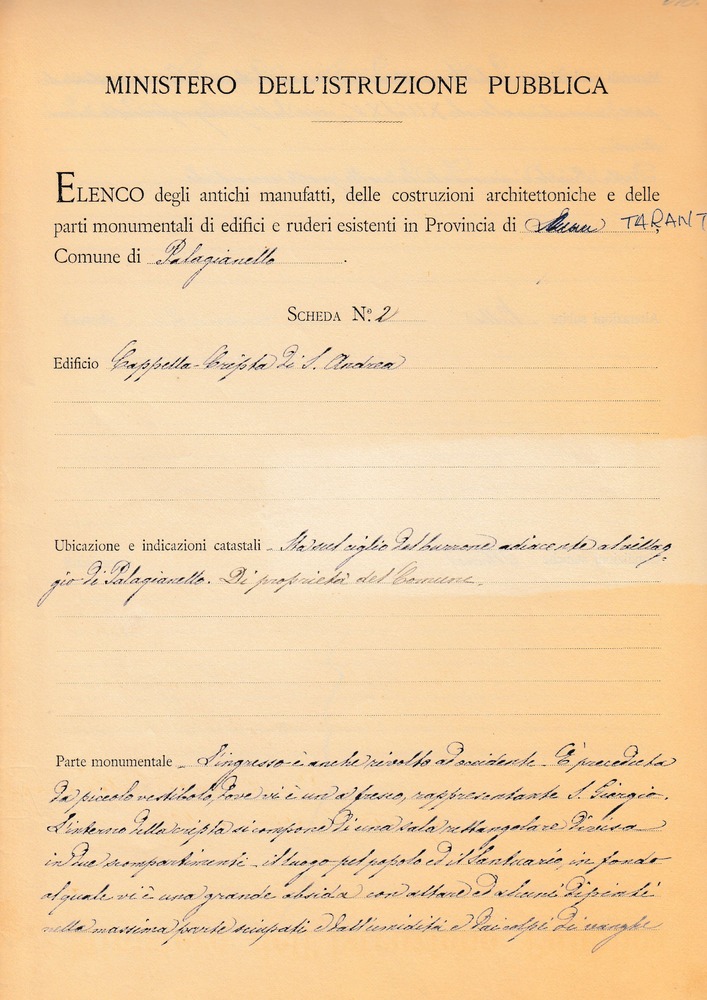 MINISTERO DELL'ISTRUZIONE PUBBLICA
ELENCO degli antichi manufatti, delle costruzioni architettoniche e delle
parti monumentali di edifici e ruderi esistenti in Provincia di TARANT
Comune di Palagianello.
SCHEDA N.º 2
Edificio Cappella-Cripta di S. Andrea
Ubicazione e indicazioni catastali - Sta sul ciglio del burrone adiacente al villag-
gio di Palagianello. Di proprietà del Comune.
Parte monumentale - L'ingresso è anche rivolto ad occidente - È preceduta
da piccolo vestibolo, dove vi è un a fresco, rappresentante S. Giorgio.
L'interno della cripta si compone di una sala rettangolare divisa
in due scompartimenti - il luogo pel popolo ed il Santuario, in fondo
al quale vi è una grande absida con altare ed alcuni dipinti
nella massima parte sciupati e dall'umidità e dai colpi di vanghe